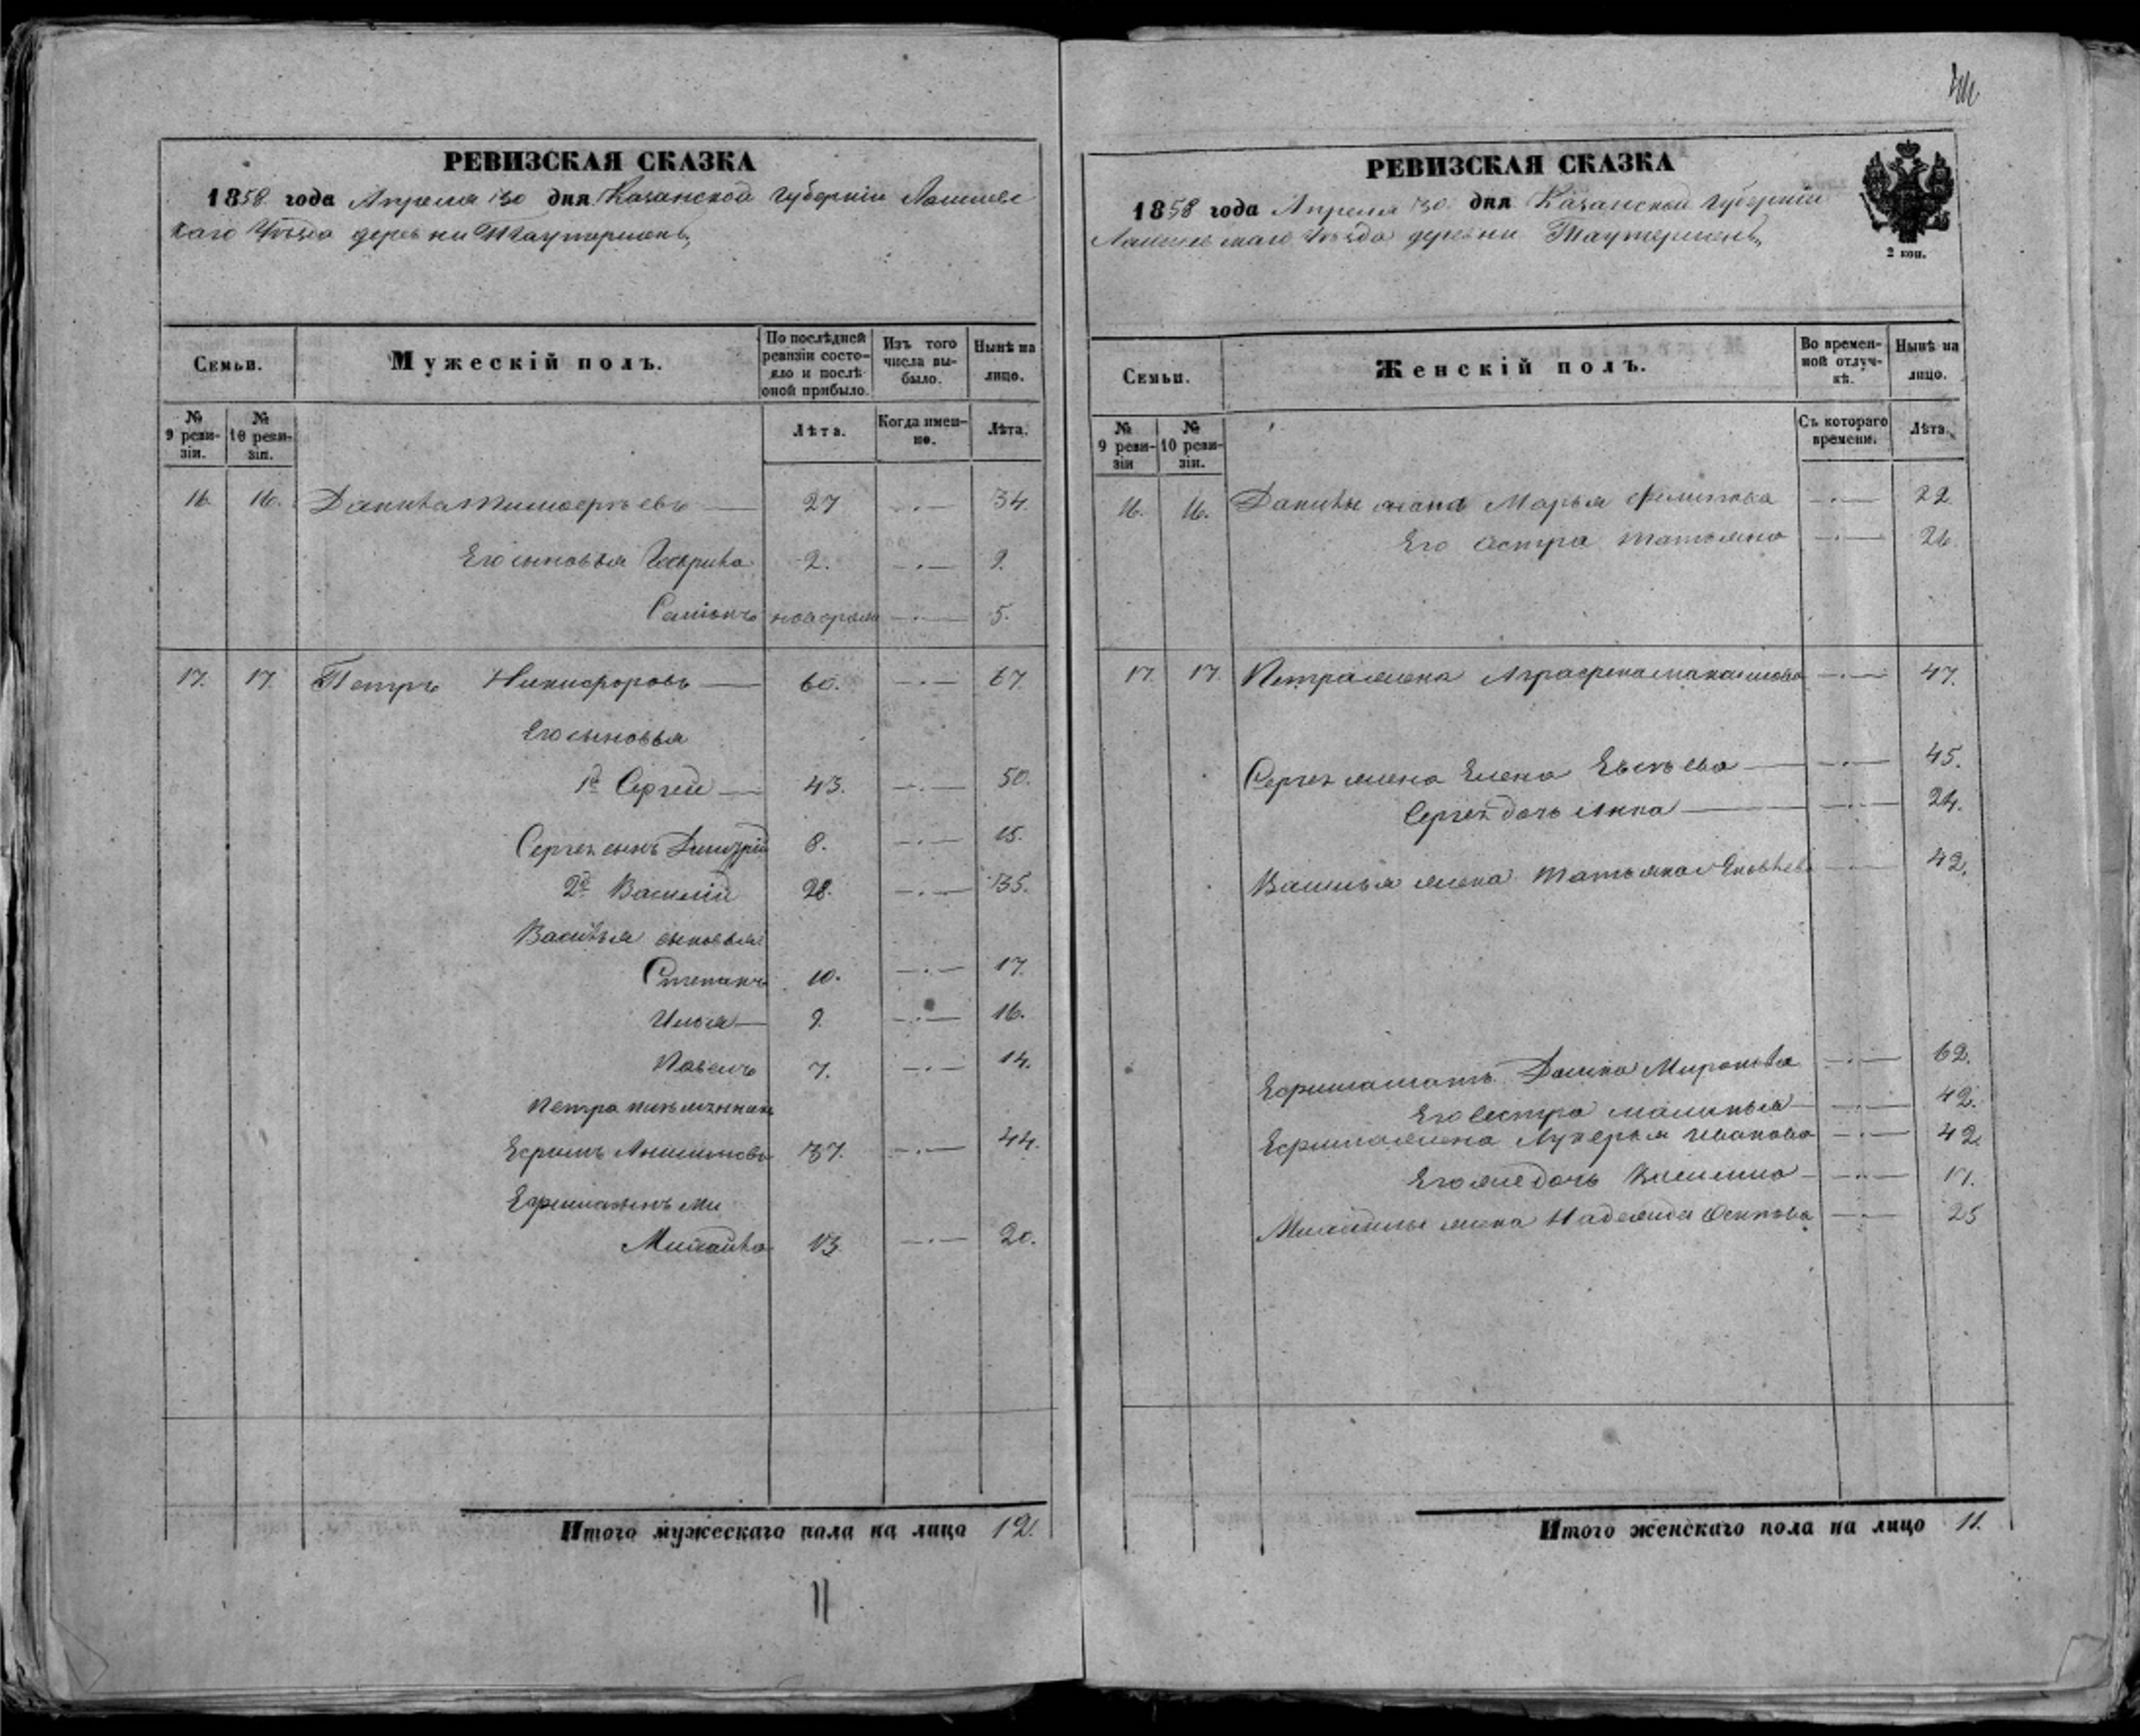 РЕВИЗСКАЯ СКАЗКА
1858 года Апреля 30 дня Казанской Губернiи Лаишевс
каго Уѣзда деревни Таутермень
Семьи.
Мужескiй полъ.
По послѣдней ревизiи состояло и послѣ оной прибыло.
Изъ того числа выбыло.
Нынѣ на лицо.
№ 9 ревизiи.
№ 10 ревизiи.
Лѣта.
Когда именно.
Лѣта.
16. 16. Данила 27 34.
Его сыновья Гаврила 2. 9.
Семiонъ 5.
17. 17. Петръ Никифоровъ 60. 67.
Его сыновья
1й Сергей 43. 50.
Сергея сынъ Дмитрiй 8. 15.
2й Василiй 28. 35.
Василья сыновья
Степанъ 10. 17.
Илья 9. 16.
Павелъ 7. 14.
Петра племянникъ
Ефимъ Анисимовъ 37. 44.
Ефима сынъ Ми
Михайла 13. 20.
Итого мужескаго пола на лицо 12.
11
РЕВИЗСКАЯ СКАЗКА
1858 года Апреля 30 дня Казанской Губернiи
Лаишевскаго Уѣзда деревни Таутермень
2 коп.
Семьи.
Женскiй полъ.
Во временной отлучкѣ.
Нынѣ на лицо.
№ 9 ревизiи
№ 10 ревизiи.
Съ котораго времени.
Лѣта.
16. 16. Данилы жена Марья Филипова 22
Его сестра Татьяна 26.
17. 17. Петра жена Аграфена 47.
Сергея жена Елена 45.
Сергея дочь Анна 24.
Василья жена Татьяна Яковлева 42.
Ефима мать Миронова 62.
Его сестра Маланья 42.
Ефима жена Лукерья Иванова 42
Его же дочь
Михайлы жена Надежда Осипова 25
Итого женскаго пола на лицо 11.